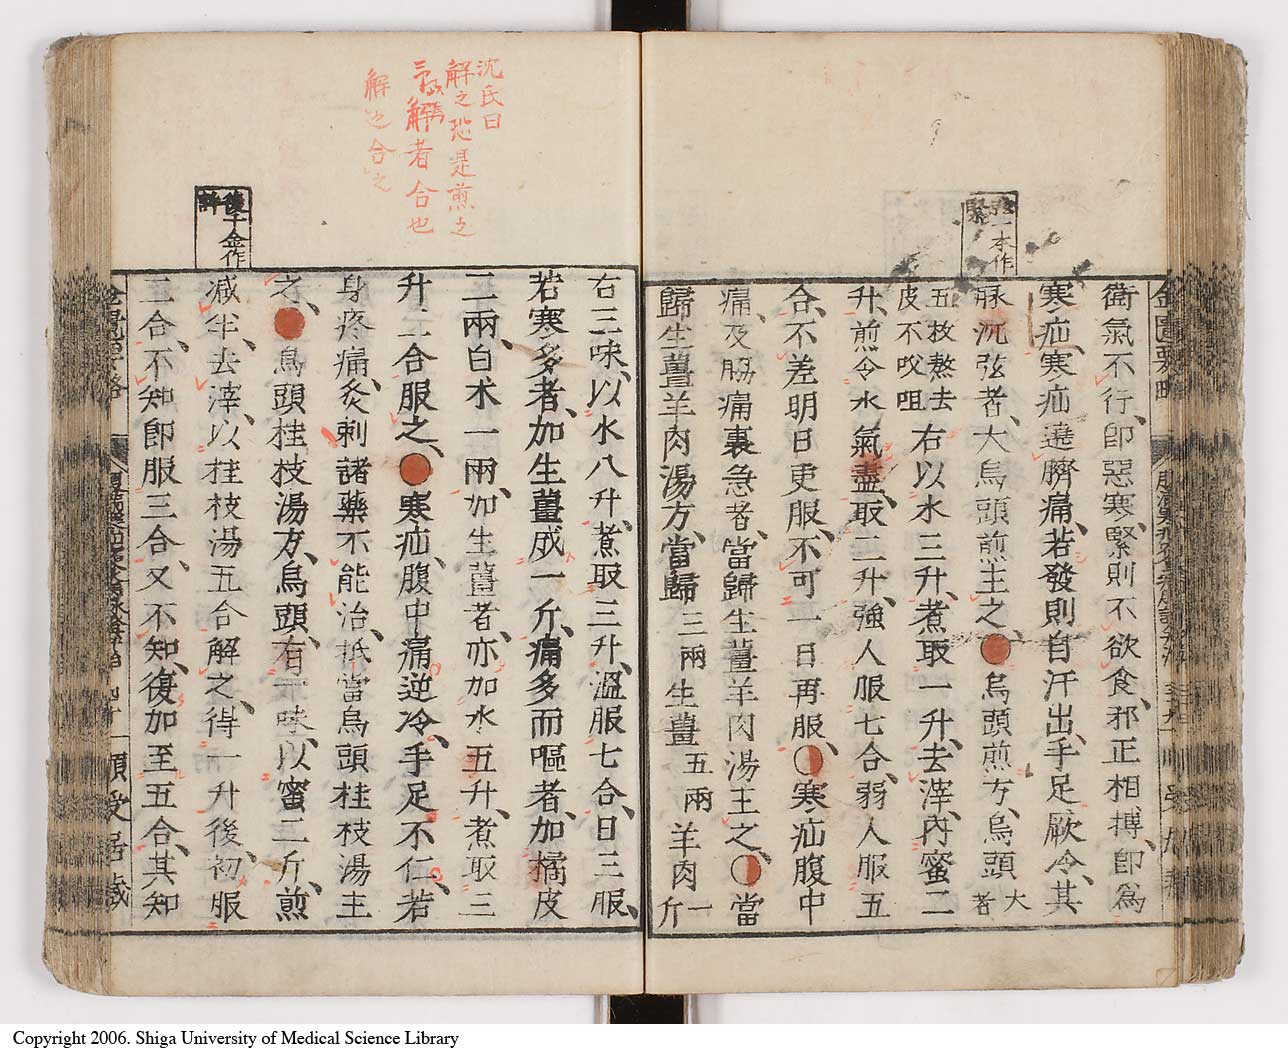 衛氣不行、即惡寒、緊則不欲食、邪正相搏、即爲
寒疝、寒疝遶臍痛、若發則自汗出、手足厥冷、其
脉沉弦者、大烏頭煎主之、烏頭煎方、烏頭大者
五枚熬去皮不㕮咀右以水三升、煮取一升、去滓、內蜜二
升、煎令水氣盡、取二升、強人服七合、弱人服五
合、不差明日更服、不可一日再服、寒疝腹中
痛、及脇痛裏急者、當歸生薑羊肉湯主之、當
歸生薑羊肉湯方、當歸三兩生薑五兩羊肉一斤
一本作
緊
金匱要略
右三味、以水八升、煮取三升、溫服七合、日三服、
若寒多者、加生薑成一斤、痛多而嘔者、加橘皮
二兩、白朮一兩、加生薑者、亦加水五升、煮取三
升二合服之、寒疝腹中痛逆冷、手足不仁、若
身疼痛、灸刺諸藥不能治、抵當烏頭桂枝湯主
之、烏頭桂枝湯方、烏頭、右一味、以蜜二斤、煎
減半、去滓、以桂枝湯五合解之、得一升後、初服
二合、不知即服三合、又不知、復加至五合、其知
沈氏曰
解之恐是煎之
解者合也
解之合之
復千金作
金匱要略
Copyright 2006. Shiga University of Medical Science Library